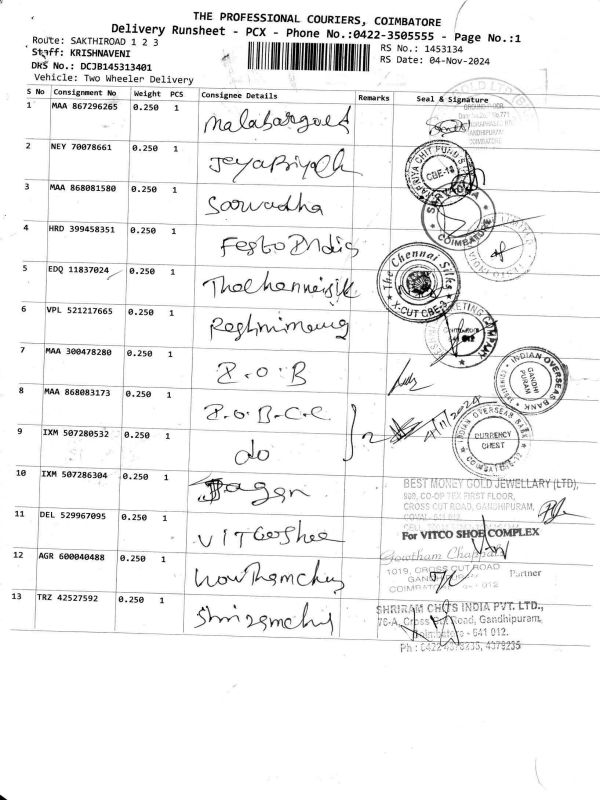 THE PROFESSIONAL COURIERS, COIMBATORE
Delivery Runsheet - PCX - Phone No.:0422-3505555 - Page No.:1
Route: SAKTHIROAD 1 2 3
RS No.: 1453134
Staff: KRISHNAVENI
RS Date: 04-Nov-2024
DRS No.: DCJB145313401
Vehicle: Two Wheeler Delivery
S No Consignment No Weight PCS Consignee Details Remarks Seal & Signature
1 MAA 867296265 0.250 1 malabargold
2 NEY 70078661 0.250 1
CBE-18
3 MAA 868081580 0.250 1 Sarvadha
COIMBATORE
4 HRD 399458351 0.250 1 Festo India
5 EDQ 11837024 0.250 1
The Chennai Silks
X-CUT CBE-3
6 VPL 521217665 0.250 1
7 MAA 300478280 0.250 1 I.O.B
INDIAN OVERSEAS BANK
GANDHI PURAM
8 MAA 868083173 0.250 1 I.O.B-C.C
4/11/2024
INDIAN OVERSEAS BANK
CURRENCY CHEST
9 IXM 507280532 0.250 1 do
10 IXM 507286304 0.250 1
BEST MONEY GOLD JEWELLARY (LTD),
CO-OP TEX FIRST FLOOR,
CROSS CUT ROAD, GANDHIPURAM,
11 DEL 529967095 0.250 1 VITCOshoe
For VITCO SHOE COMPLEX
12 AGR 600040488 0.250 1 Gowthamchap
Gowtham
1019, CROSS CUT ROAD
Partner
13 TRZ 42527592 0.250 1 Shriramchits
SHRIRAM CHITS INDIA PVT. LTD.,
76-A, Cross Cut Road, Gandhipuram,
Coimbatore - 641 012.
Ph : 0422 4378235, 4379235